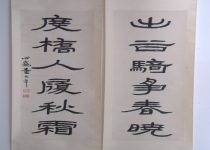 出谷騎爭春曉
度橋人履秋霜